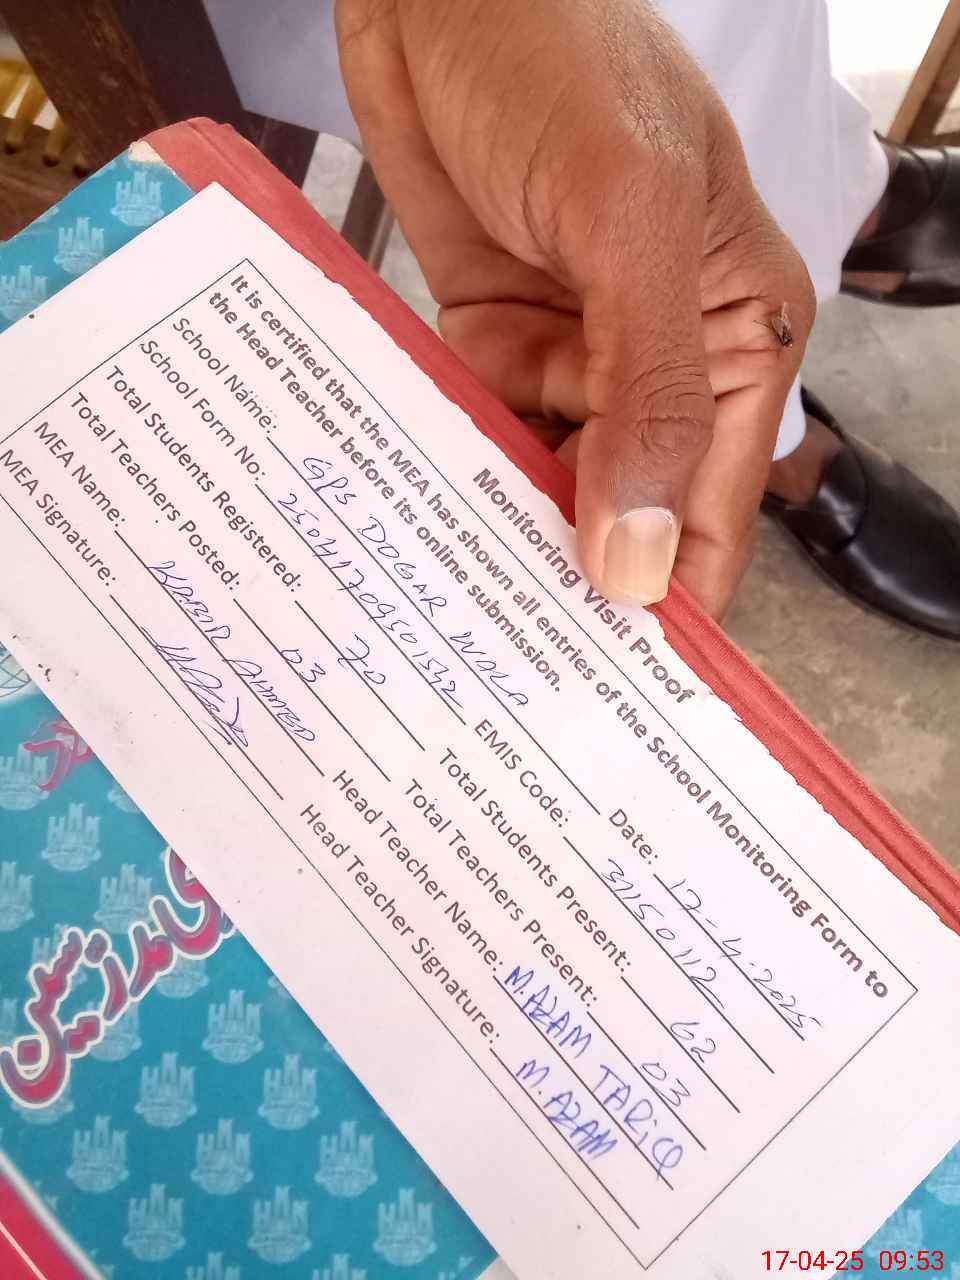 Monitoring Visit Proof
It is certified that the MEA has shown all entries of the School Monitoring Form to
the Head Teacher before its online submission.
School Name: GPS DOGAR WALA Date: 17-4-2025
School Form No: 25041709501542 EMIS Code: 31150112
Total Students Registered: 70 Total Students Present: 62
Total Teachers Posted: 03 Total Teachers Present: 03
MEA Name: KABOR AHMED Head Teacher Name: M.AZAM TARiQ
MEA Signature: Head Teacher Signature: M.AZAM
17-04-25 09:53